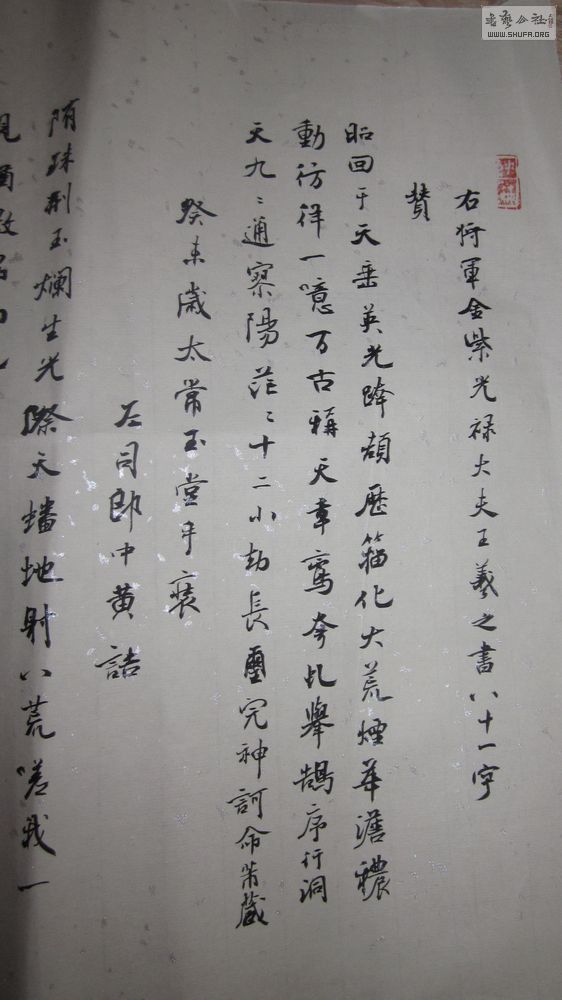 書藝公社
WWW.SHUFA.ORG
右将軍金紫光禄大夫王羲之書八十一字
賛
昭回于天垂英光跨頡歷籀化大荒煙華澹穠
動彷徉一噫万古稱天章鸞夸虬舉鵠序行洞
天九〻通寥陽茫〻十二小劫長璽完神訶命芾藏
癸未歲太常玉堂手裝
左司郎中黄誥
隋珠荆玉爛生光際天蟠地射八荒嗟我一